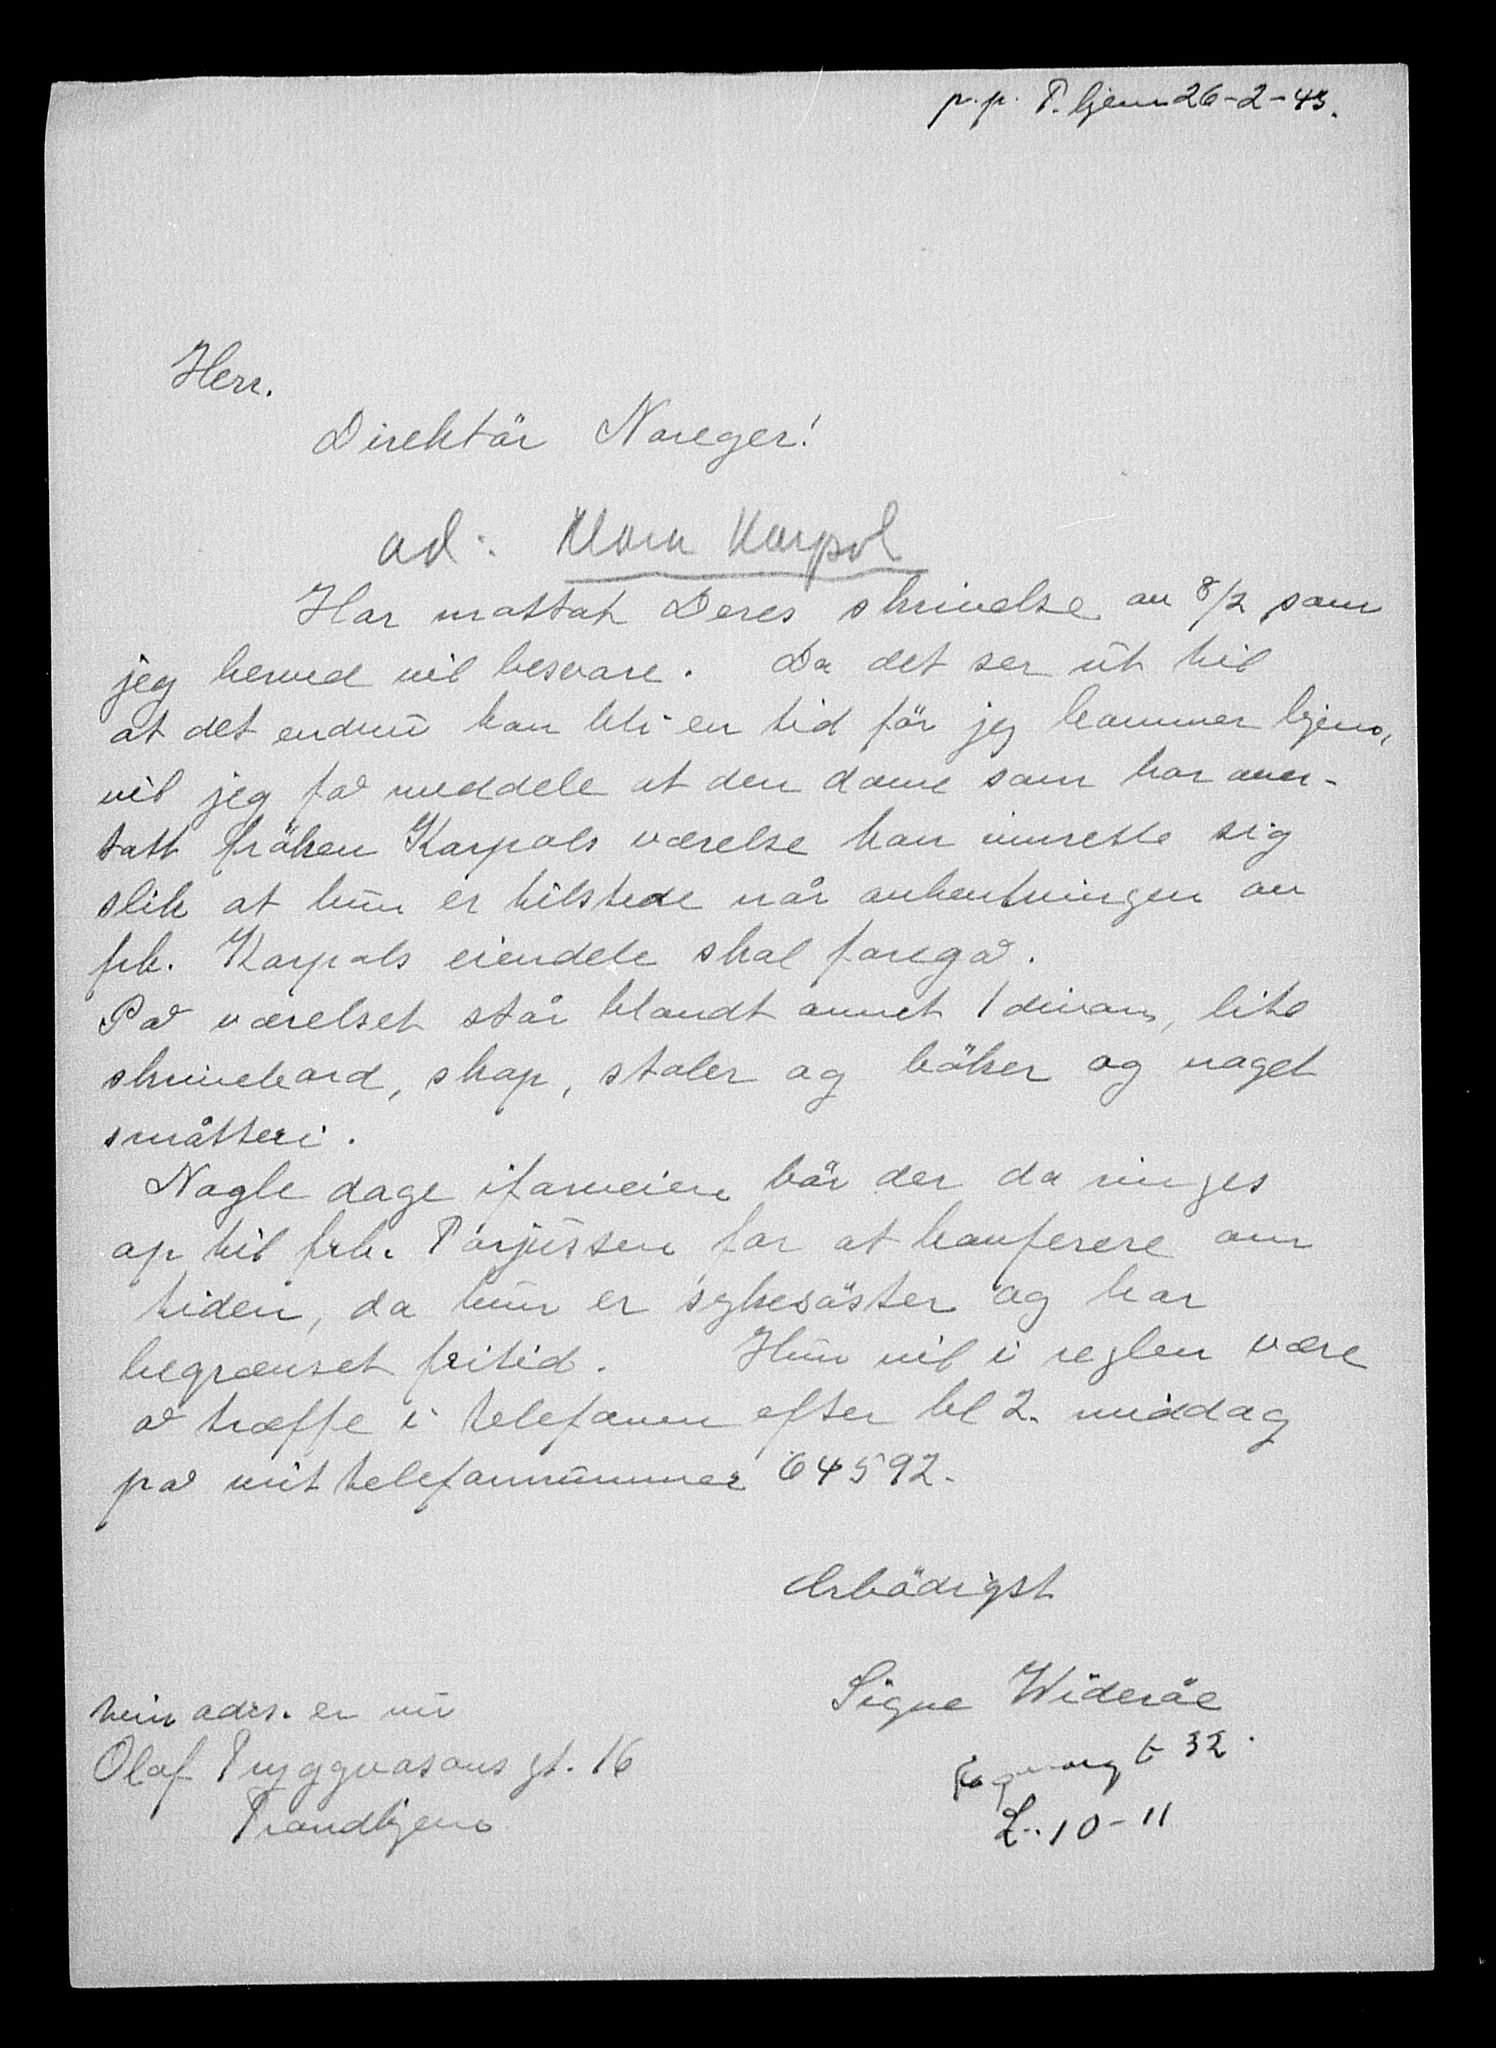 p.p. T.hjem 26-2-43.
Herr.
Direktör Noreger!
ad: Klara Karpol
Har mottat Deres skrivelse av 8/2 som
jeg herved vil besvare. Da det ser ut til
at det endnu kan bli en tid før jeg kommer hjem,
vil jeg få meddele at den dame som har over-
tatt fröken Karpols værelse kan innrette sig
slik at hun er tilstede når avhentningen av
frk. Karpols eiendele skal foregå.
På værelset står blandt annet 1 divan, lite
skrivebord, skap, stoler og böker og noget
småtteri.
Nogle dage iforveien bör der da ringes
op til frk. Torjussen for at konferere om
tiden, da hun er sykesöster og har
begrænset fritid. Hun vil i reglen være
å træffe i telefonen efter kl 2. middag
på mit telefonnummer 64592.
Ærbödigst
Signe Wideröe
min adrs. er nu
Olaf Tryggvasons gt. 16
Trondhjem
t 32.
10-11